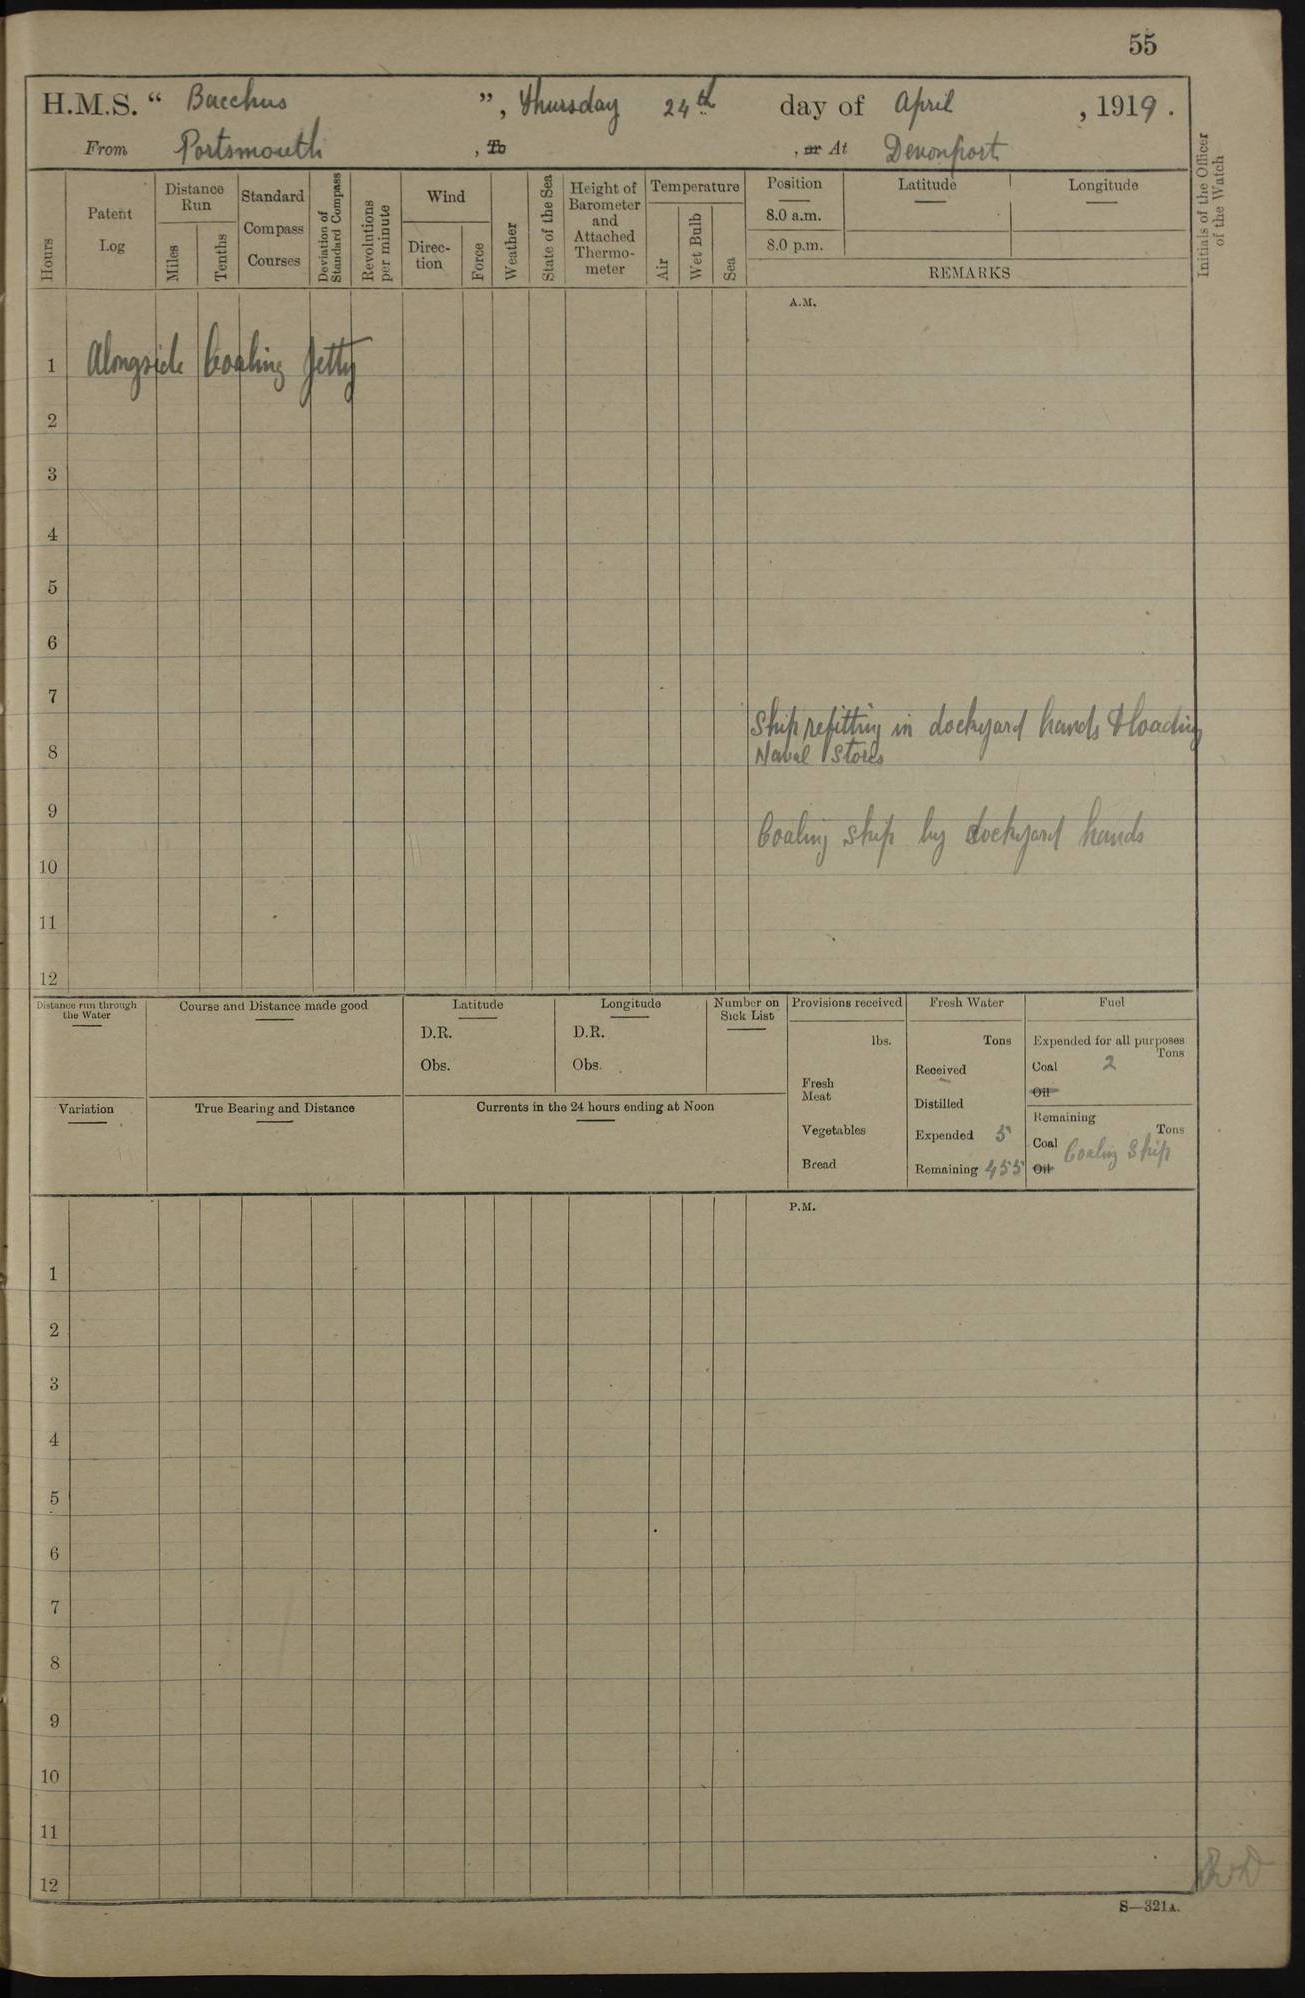 55
H.M.S. “ Bacchus ”, Thursday 24th day of April , 1919.
From Portsmouth , To , or At Devonport
Hours
Patent Log
Distance Run
Miles
Tenths
Standard Compass Courses
Deviation of Standard Compass
Revolutions per minute
Wind
Direc-tion
Force
Weather
State of the Sea
Height of Barometer and Attached Thermo-meter
Temperature
Air
Wet Bulb
Sea
Position
8.0 a.m.
8.0 p.m.
Latitude
Longitude
REMARKS
Initials of the Officer of the Watch
A.M.
1 Alongside Coaling Jetty
2
3
4
5
6
7
Ship refitting in dockyard hands & loading
8 Naval Stores
9
Coaling ship by dockyard hands
10
11
12
Distance run through the Water
Course and Distance made good
Latitude
D.R.
Obs.
Longitude
D.R.
Obs.
Number on Sick List
Provisions received
lbs.
Fresh Meat
Vegetables
Bread
Fresh Water
Tons
Received
Distilled
Expended 5
Remaining 455
Fuel
Expended for all purposes
Tons
Coal 2
Oil
Remaining
Tons
Coal Coaling Ship
Oil
Variation
True Bearing and Distance
Currents in the 24 hours ending at Noon
P.M.
1
2
3
4
5
6
7
8
9
10
11
12
S—321A.